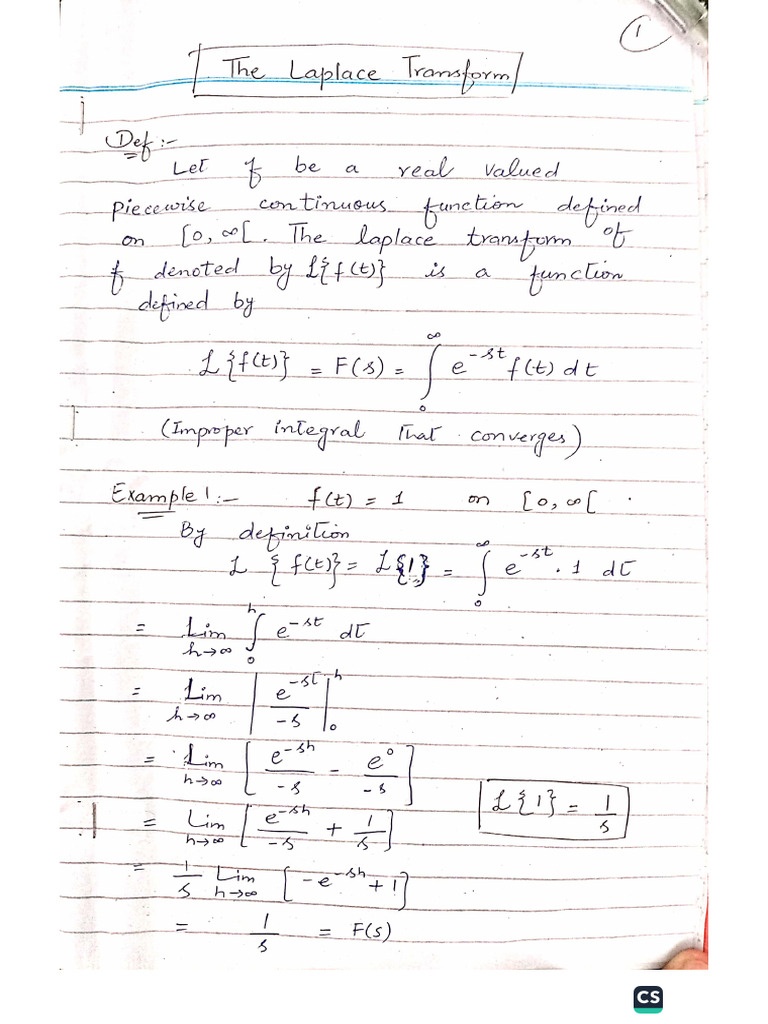 1
The Laplace Transform
Def :-
Let f be a real valued
piecewise continuous function defined
on [0, ∞[. The laplace transform of
f denoted by ℒ{f(t)} is a function
defined by
ℒ{f(t)} = F(s) = ∫₀^∞ e^{-st} f(t) dt
(Improper integral that converges)
Example 1:- f(t) = 1 on [0, ∞[ .
By definition
ℒ {f(t)} = ℒ{1} = ∫₀^∞ e^{-st} . 1 dt
= Lim_{h→∞} ∫₀^h e^{-st} dt
= Lim_{h→∞} | e^{-st}/-s |₀^h
= Lim_{h→∞} [ e^{-sh}/-s - e^0/-s ]
ℒ{1} = 1/s
= Lim_{h→∞} [ e^{-sh}/-s + 1/s ]
= 1/s Lim_{h→∞} [ -e^{-sh} + 1 ]
= 1/s = F(s)
CS